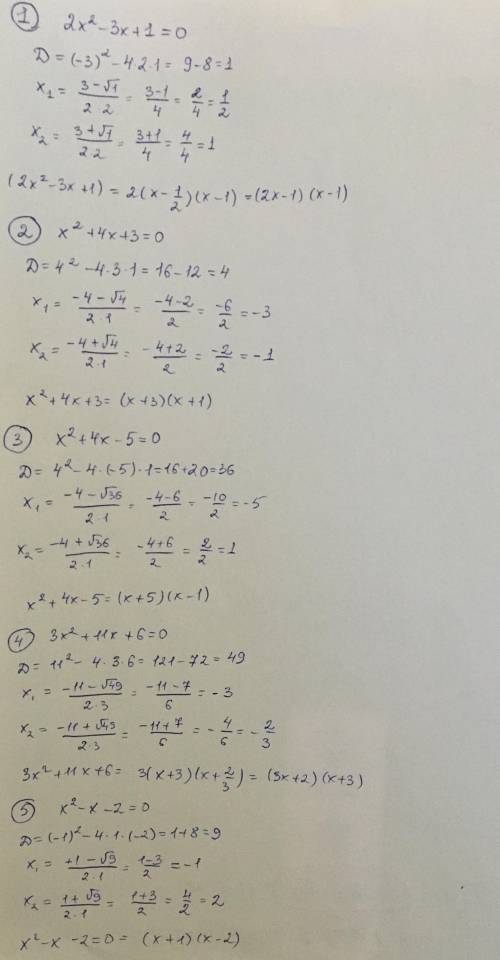 ① 2x² - 3x + 1 = 0
D = (-3)² - 4·2·1 = 9 - 8 = 1
x₁ = (3 - √1)/(2·2) = (3-1)/4 = 2/4 = 1/2
x₂ = (3 + √1)/(2·2) = (3+1)/4 = 4/4 = 1
(2x² - 3x + 1) = 2(x - 1/2)(x - 1) = (2x - 1)(x - 1)
② x² + 4x + 3 = 0
D = 4² - 4·3·1 = 16 - 12 = 4
x₁ = (-4 - √4)/(2·1) = (-4-2)/2 = -6/2 = -3
x₂ = (-4 + √4)/(2·1) = (-4+2)/2 = -2/2 = -1
x² + 4x + 3 = (x + 3)(x + 1)
③ x² + 4x - 5 = 0
D = 4² - 4·(-5)·1 = 16 + 20 = 36
x₁ = (-4 - √36)/(2·1) = (-4-6)/2 = -10/2 = -5
x₂ = (-4 + √36)/(2·1) = (-4+6)/2 = 2/2 = 1
x² + 4x - 5 = (x + 5)(x - 1)
④ 3x² + 11x + 6 = 0
D = 11² - 4·3·6 = 121 - 72 = 49
x₁ = (-11 - √49)/(2·3) = (-11-7)/6 = -3
x₂ = (-11 + √49)/(2·3) = (-11+7)/6 = -4/6 = -2/3
3x² + 11x + 6 = 3(x + 3)(x + 2/3) = (3x + 2)(x + 3)
⑤ x² - x - 2 = 0
D = (-1)² - 4·1·(-2) = 1 + 8 = 9
x₁ = (+1 - √9)/(2·1) = (1-3)/2 = -1
x₂ = (1 + √9)/(2·1) = (1+3)/2 = 4/2 = 2
x² - x - 2 = 0 = (x + 1)(x - 2)